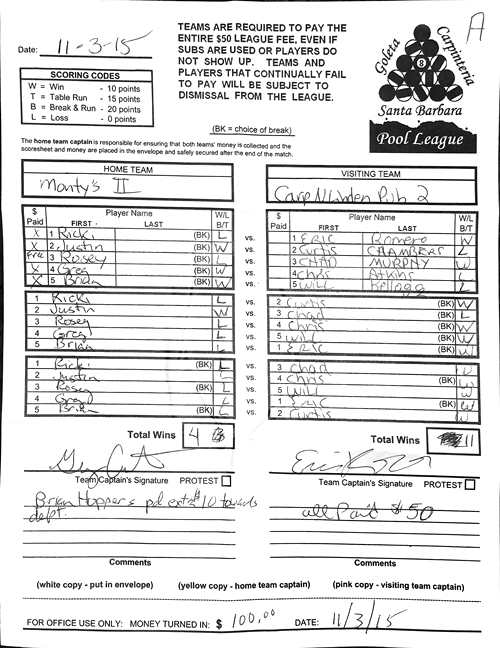 A
Date: 11-3-15
TEAMS ARE REQUIRED TO PAY THE
ENTIRE $50 LEAGUE FEE, EVEN IF
SUBS ARE USED OR PLAYERS DO
NOT SHOW UP. TEAMS AND
PLAYERS THAT CONTINUALLY FAIL
TO PAY WILL BE SUBJECT TO
DISMISSAL FROM THE LEAGUE.
Goleta Carpinteria
8
Santa Barbara
Pool League
SCORING CODES
W = Win - 10 points
T = Table Run - 15 points
B = Break & Run - 20 points
L = Loss - 0 points
(BK = choice of break)
The home team captain is responsible for ensuring that both teams' money is collected and the
scoresheet and money are placed in the envelope and safely secured after the end of the match.
HOME TEAM
Monty's II
VISITING TEAM
Carp N Linden Pub 2
$ Paid Player Name FIRST LAST W/L B/T
$ Paid Player Name FIRST LAST W/L B/T
X 1 Ricki (BK) L vs. 1 ERIC Romero W
X 2 Justin W vs. 2 Curtis CHAMBERS L
Free 3 Rosey L vs. 3 CHAD MURPHY W
X 4 Greg W vs. 4 Chris Atkins L
X 5 Brian (BK) W vs. 5 Will Kellogg L
1 Ricki L vs. 2 Curtis (BK) W
2 Justin W vs. 3 Chad (BK) L
3 Rosey L vs. 4 Chris (BK) W
4 Greg L vs. 5 Will (BK) W
5 Brian L vs. 1 ERIC (BK) W
1 Ricki (BK) L vs. 3 Chad W
2 Justin L vs. 4 Chris W
3 Rosey (BK) L vs. 5 Will W
4 Greg L vs. 1 ERIC (BK) W
5 Brian (BK) L vs. 2 Curtis W
Total Wins 4
Total Wins 11
Team Captain's Signature PROTEST
Team Captain's Signature PROTEST
Brian Hopper's pd extra $10 towards
dept.
all Paid $50
Comments
Comments
(white copy - put in envelope) (yellow copy - home team captain) (pink copy - visiting team captain)
FOR OFFICE USE ONLY: MONEY TURNED IN: $ 100.00 DATE: 11/3/15